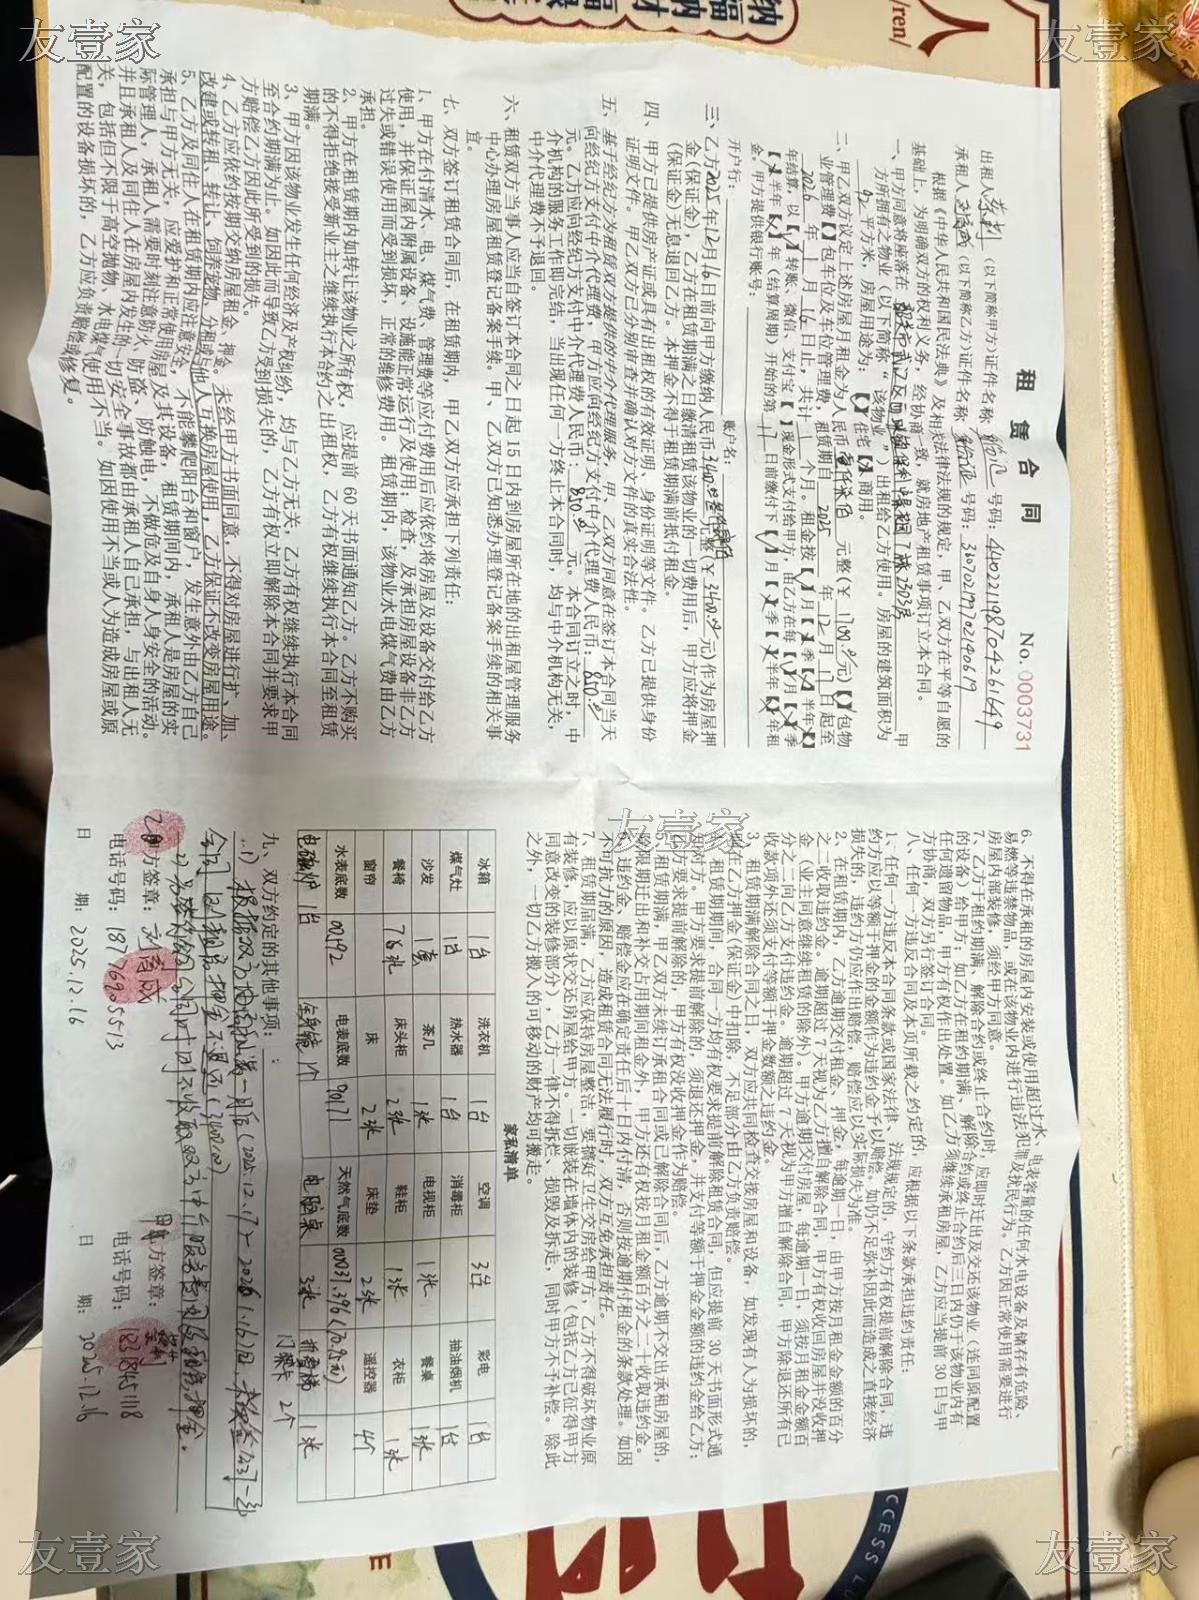 友壹家
友壹家
租 赁 合 同
No. 0003731
出租人 (以下简称甲方)证件名称 号码: 440221198704261649
承租人 (以下简称乙方)证件名称 号码: 360902199702140619
根据《中华人民共和国民法典》及相关法律法规的规定,甲、乙双方在平等自愿的
基础上,为明确双方的权利义务,经协商一致,就房地产租赁事项订立本合同。
一、甲方同意将座落在 甲
方所拥有之物业(以下简称“该物业”)出租给乙方使用。房屋的建筑面积为
92 平方米,房屋用途为:【 】住宅【 】商用。
二、甲乙双方议定上述房屋月租金为人民币 元整(¥ 1700.00元)【 】包物
业管理费【 】包车位及车位管理费,租赁期自 2025 年 12 月 17 日起至
2026 年 1 月 16 日止,共计 1 个月。租金按【 】月【 】季【 】半年【 】
年结算,以【√】转账、微信、支付宝【 】现金形式支付给甲方,由乙方在每【 】月【 】季
【 】半年【 】年(结算周期)开始的第 17 日前缴付下【 】月【 】季【 】半年【 】年租
金。甲方提供银行账号:
开户行: 账户名:
三、乙方2025年12月16日前向甲方缴纳人民币 元整(¥ 3400.00元)作为房屋押
金(保证金),乙方在租赁期满之日缴清租赁该物业的一切费用后,甲方应将押金
(保证金)无息退回乙方。本押金不得于租赁期满前抵付租金。
四、甲方已提供房产证或具有出租权的有效证明、身份证明等文件。乙方已提供身份
证明文件。甲乙双方已分别审查并确认对方文件的真实合法性。
五、基于经纪方为租赁双方提供的中介代理服务,甲、乙双方同意在签订本合同当天
向经纪方支付中介代理费,甲方应向经纪方支付中介代理费人民币: 850.00
元。乙方应向经纪方支付中介代理费人民币: 850.00 元。本合同订立之时,中
介机构的服务工作即完结,当出现任何一方终止本合同时,均与中介机构无关,
中介代理费不予退回。
六、租赁双方当事人应当自签订本合同之日起15日内到房屋所在地的出租屋管理服务
中心办理房屋租赁登记备案手续。甲、乙双方已知悉办理登记备案手续的相关事
宜。
七、双方签订租赁合同后,在租赁期内,甲乙双方应承担下列责任:
1、甲方在付清水、电、煤气费、管理费等应付费用后应依约将房屋及设备交付给乙方
使用,并保证屋内附属设备、设施能正常运行及使用;检查,及承担房屋设备非乙方
过失或错误使用而受到损坏,正常的维修费用。租赁期内,该物业水电煤气费由乙方
承担。
2、甲方在租赁期内如转让该物业之所有权,应提前60天书面通知乙方。乙方不购买
的不得拒绝接受新业主之继续执行本合约之出租权,乙方有权继续执行本合同至租赁
期满。
3、甲方因该物业发生任何经济及产权纠纷,均与乙方无关,乙方有权继续执行本合同
至合约期满为止。如因此而导致乙方受到损失的,乙方有权立即解除本合同并要求甲
方赔偿乙方因此所受到的损失。
4、乙方应依约按期交纳房屋租金、押金。未经甲方书面同意,不得对房屋进行扩、加、
改建或转租、转让、饲养宠物、分租或与他人互换房屋使用,乙方保证不改变房屋用途。
5、乙方及同住人在租赁期内应注意安全,不能攀爬阳台和窗户,发生意外由乙方自己
承担与甲方无关,应爱护和正常使用房屋及其设备,租赁期间内,承租人是房屋的实
际管理人,承租人需要时刻注意防火、防盗、防触电,不做危及自身人身安全的活动。
并且承租人及同住人在房屋内发生的一切安全事故都由承租人自己承担,与出租人无
关,包括但不限于高空抛物,水电煤气使用不当。如因使用不当或人为造成房屋或原
配置的设备损坏的,乙方应负责赔偿或修复。
友壹家
6、不得在承租的房屋内安装或使用超过水、电表容量的任何水电设备及储存有危险、
易燃等违禁物品,或在该物业内进行违法犯罪及扰民行为。乙方因正常使用需要进行
房屋内部装修,须经甲方同意。
7、乙方于租约期满、解除合约或终止合约时,应即时迁出及交还该物业(连同原配置
的设备)给甲方;如乙方在租约期满、解除合约或终止合约后三日内仍于该物业内有
任何遗留物品,甲方有权作出处置。如乙方须继续承租房屋,乙方应当提前30日与甲
方协商,双方另行签订合同。
八、任何一方违反合同及本页所载之约定的,应根据以下条款承担违约责任:
1、任何一方违反本合同条款或国家法律、法规规定的,守约方有权提前解除合同,违
约方应以等额于押金的金额作为违约金予以赔偿。如仍不足弥补因此而造成之直接经济
损失的,违约方仍应作出赔偿,赔偿应以实际损失为准。
2、在租赁期内,乙方逾期交付租金、押金,每逾期一日,由甲方按月租金金额的百分
之二收取违约金。逾期超过7天视为乙方擅自解除合同,甲方有权收回房屋并没收押
金(业主同意继续租赁的除外)。甲方逾期交付房屋,每逾期一日,须按月租金金额百
分之二向乙方支付违约金。逾期超过7天视为甲方擅自解除合同,甲方除退还所有已
收款项外还须支付等额于押金数额之违约金。
3、租赁期满解除合同之日,双方应共同检查交接房屋和设备,如发现有人为损坏的,
则在乙方押金(保证金)中扣除,不足部分由乙方负责赔偿。
4、租赁期期间,合同一方均有权要求提前解除租赁合同,但应提前30天书面形式通
知对方。甲方要求提前解除的,须退还押金,并支付等额于押金金额的违约金给乙方;
乙方要求提前解除的,甲方有权没收押金作为赔偿。
5、租赁期满,甲乙双方未续订承租合同或已解除合同后,乙方逾期不交出承租房屋的,
除限期迁出和补交占用期间租金外,甲方还有权按月租金额百分之二十收取违约金。
6、违约金、赔偿金应在确定责任后十日内付清,否则按逾期付租金的条款处理。如因
不可抗力的原因,造成租赁合同无法履行时,双方互免承担责任。
7、租赁期届满,乙方应保持房屋整洁,要搞好卫生交房给甲方,乙方不得破坏物业原
有装修,应以原状交还房屋给甲方。一切嵌装在墙体内的装修(包括乙方已征得甲方
同意改变的装修部分),乙方一律不得拆拦、损毁及拆走,同时甲方不予补偿。除此
之外,一切乙方搬入的可移动的财产均可搬走。
家私清单
冰箱 1台 洗衣机 1台 空调 3台 彩电 1台
煤气灶 1台 热水器 1台 消毒柜 抽油烟机 1台
沙发 1套 茶几 1张 电视柜 1张 餐桌 1张
餐椅 7张 床头柜 2张 鞋柜 1张 衣柜 1张
窗帘 床 2张 床垫 2张 遥控器 4个
水表底数 00492 电表底数 90171 天然气底数 00031.396
电磁炉 1台 全身镜 1个 电脑桌 3张 折叠梯 1张
门禁卡 2个
九、双方约定的其他事项:
乙方签章:
甲方签章:
电话号码: 18776905513
电话号码: 18318451118
日 期: 2025.12.16
日 期: 2025.12.16
友壹家
友壹家